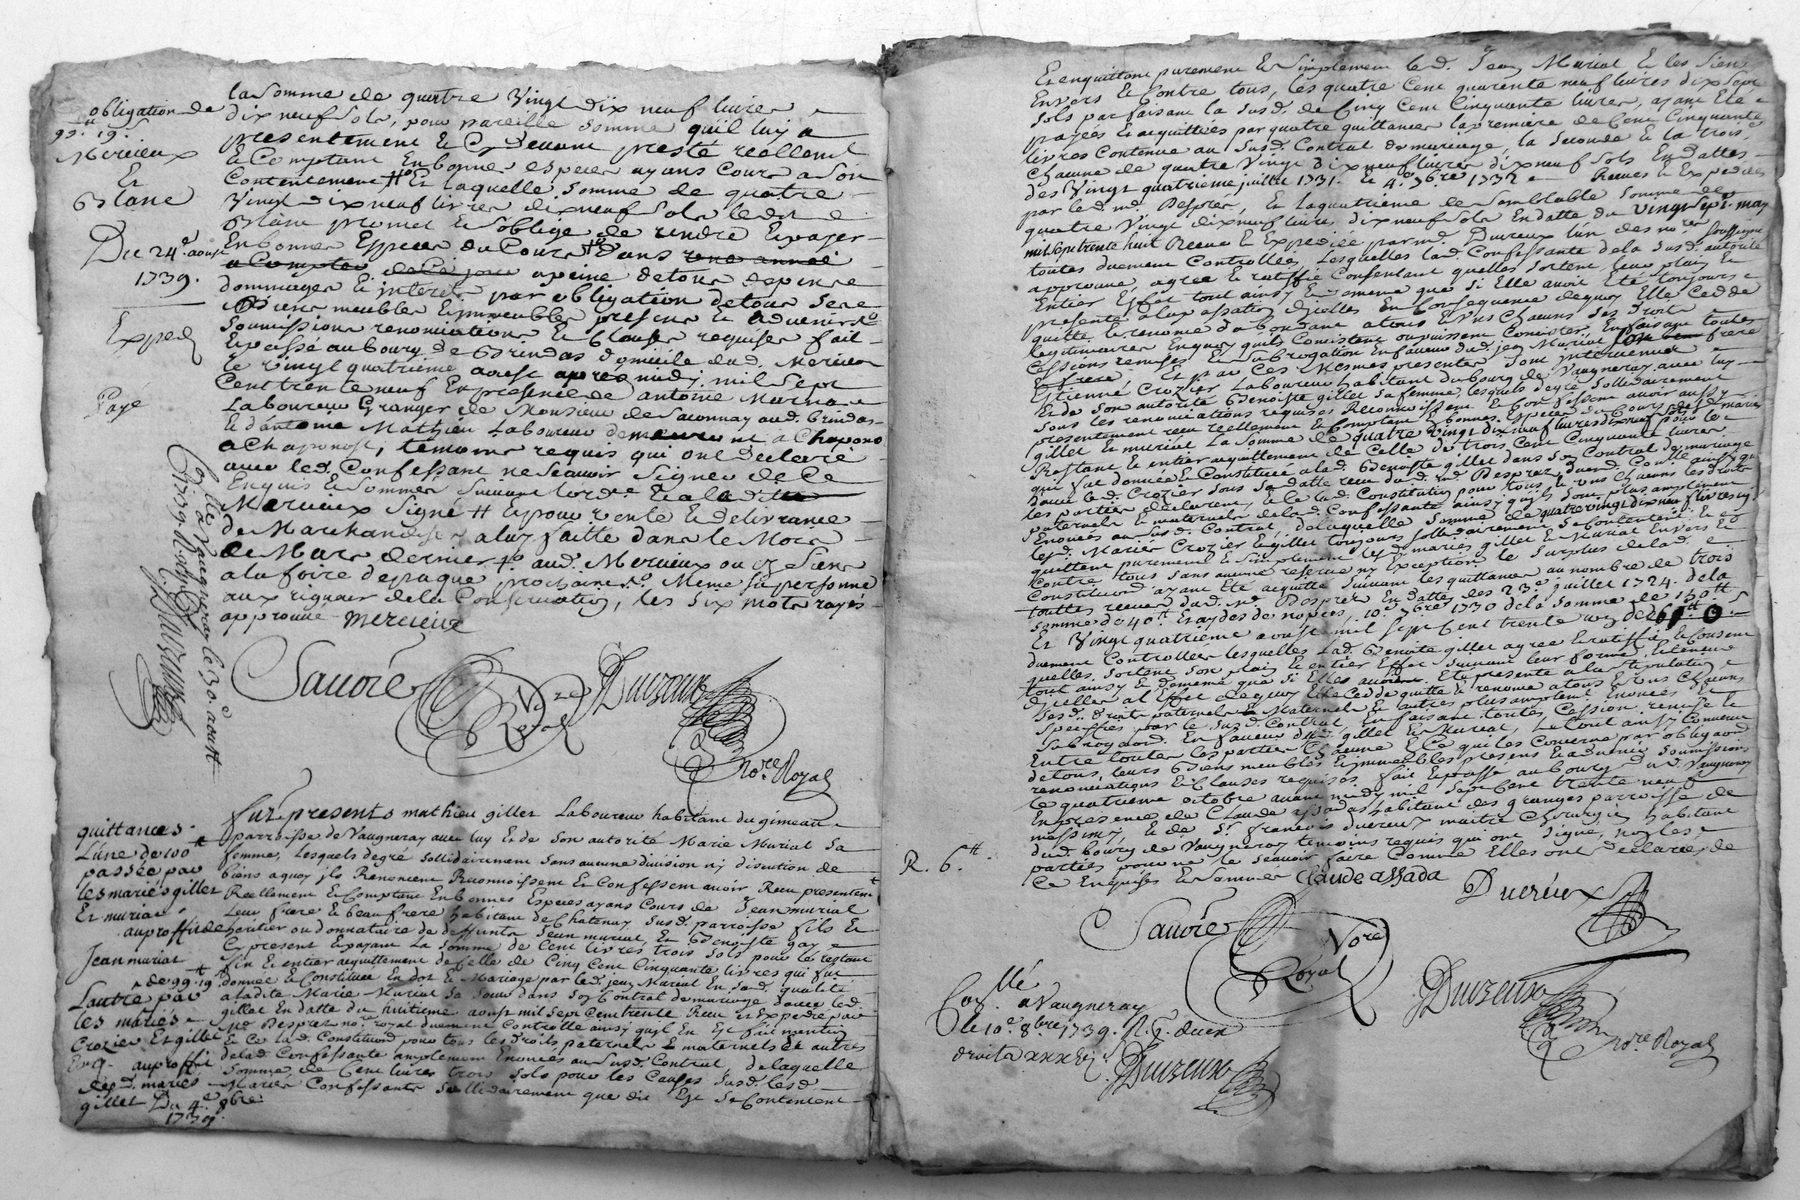 obligation de
99.tt 19.s
Mercieux
Et
Blanc
Du 24.e aoust
1739.
Expedz
Payé
la Somme de quatre Vingt dix neuf livres
dix neuf Sols, pour pareille Somme qu'il luy a
presentement & Cy devant presté reellemt
& Comptant En bonnes especes ayans Cours a Son
Contentement # Et laquelle Somme de quatre
Vingt dix neuf livres dix neuf Sols ledit
Blanc promet & S'oblige de rendre & payer
En bonnes Especes du Cours # dans une année
a Compter de Ce jour a peine de tous depens
dommages & interets par obligation de tous Ses
Biens meubles & immeubles presens & advenir
Soumissions renonciations & Clauses requises fait
& passé au bourg de Brindas domicile dud. Mercieux
le Vingt quatrieme aoust apres midy mil Sept
Cent trente neuf En presence de antoine
Laboureur Granger de Monsieur de Saconnay aud. Brindas
& d'antoine Mathieu Laboureur demeurant a Chapono
a Chaponost, temoins requis qui ont declaré
avec led. Confessant ne Scavoir Signer de Ce
Enquis & Sommés Suivant l'ord.e & a led.
Mercieux Signé # & pour vente & delivrance
de Marchandises a luy faitte dans le Mois
de Mars dernier # aud. Mercieux ou es Siens
a la foire de paque prochaine # Meme Sa personne
aux rigueur de la Conservation, les Six mots rayés
approuvé Mercieux
Collé a Vaugneray le 30.e aoust
1739. R.
Duvzeux
Savoré
Vre
Royal
Duvzeux
No.re Royal
quittances
L'une de 100tt
passée par
les mariés gillet
Et murial
au proffit de
Jean murial
de 99.tt 19
L'autre par
les mariés
Crozier Et gillet
au proffit
desd. mariés
gillet Du 4.e 8bre
1739.
furt presents mathieu gillet Laboureur habitant du gimeau
parroisse de Vaugneray avec luy & de Son autorité Marie Murial Sa
femme, Lesquels de gré Sollidairement Sans aucune division ny discution de
biens a quoy ils Renoncent Reconnoissent & Confessent avoir Receu presentemt
Reellement & Comptant En bonnes Especes ayans Cours de Jean murial
Leur frere & beau frere habitant de Chatenay Susd. parroisse fils &
heritier ou donnataire de deffunts Jean murial & Benoiste gay
Cy present & payant La Somme de Cent livres trois Sols pour le restant
fin & entier acquittement de Celle de Cinq Cent Cinquante livres qui fut
donnée & Constituée En dot & Mariage par led. jean Murial En Sad. qualité
a ladite Marie Murial Sa Soeur dans Son Contrat de mariage avec led.
gillet En datte du huitieme aoust mil Sept Cent trente Receu & Expedié par
Me Desprez no.re royal duement Controllé ainsy qu'il En Est fait mention
& Ce lad. Constitution pour tous les droits paternels & maternels & autres
de lad. Confessante amplement Enoncés au Susd. Contrat, de laquelle
Somme de Cent livres trois Sols pour les Causes Susd. lesd.
Mariés Confessants Sollidairement que dit Est Se Contentent
Et en quittant purement & Simplement led. Jean Murial & les Siens
Envers & Contre tous, les quatre Cent quarente neuf livres dix Sept
Sols parfaisant la Susd. de Cinq Cent Cinquante livres, ayant Eté
payées & acquittées par quatre quittances la premiere de Cent Cinquante
livres Contenue au Susd. Contrat de mariage, la Seconde & la trois.e
Chacune de quatre Vingt dix neuf livres dix neuf Sols En dattes
des Vingt quatrieme juillet 1731. & 4.e 9bre 1732 Receues & Expediées
par led. me Desprez, & la quatrieme de Semblable Somme de
quatre Vingt dix neuf livres dix neuf Sols En datte du Vingt Sept.e may
mil Sept trente huit Receue & Expediée par me Duvzeux l'un des no.res Soussignés
toutes duement Controllées, Lesquelles lad. Confessante de la Susd. autorité
approuve, agrée & ratiffie Consentant quelles Sortent leur plain &
Entier Effet tout ainsy & de meme que Si Elle avoit Eté toujours
presente a la passation d'icelles En Consequence de quoy Elle Cedde
quitte & renonce d'abondant a tous & Uns Chacuns Ses droits
legitimaires En quoy qu'ils Consistent ou puissent Consister, En faisant toutes
Cessions remises & Subrogation En faveur dud. jean Murial Son beau frere
Et frere. Et par Ces Mesmes presentes Sont intervenus
Estienne Crozier Laboureur habitant du bourg de Vaugneray avec luy
& de Son autorité Benoiste gillet Sa femme, lesquels de gré Sollidairement
Sous les renonciations requises Reconnoissent & Confessent avoir aussy
presentement receu reellement & Comptant En bonnes Especes du Cours desd. mariés
gillet & murial La Somme de quatre Vingt dix neuf livres dix neuf Sols
Restant & entier acquittement de Celle de trois Cent Cinquante livres
qui fut donnée & Constituée a lad. Benoiste gillet dans Son Contrat de mariage
avec led. Crozier Sous Sa datte receu dud. me Desprez duement Controllé ainsy que
les parties declarent, & lad. Constitution pour tous & Uns Chacuns les droits
paternels & maternels de lad. Confessante ainsy qu'ils Sont plus amplement
Enoncés au Susd. Contrat, de laquelle Somme de quatre vingt dix neuf livres 19 s
lesd. Mariés Crozier & gillet toujours Sollidairement Se Contentent & En
quittent purement & Simplement lesd. mariés gillet & Murial Envers &
Contre tous Sans aucune reserve ny Exception, le Surplus de lad.
Constitution ayant Eté acquitté Suivant les quittances au nombre de trois
touttes receues dud. me Desprez En dattes des 23.e juillet 1724. de la
Somme de 40tt Et aydes de nopces, 10.e 9bre 1730 de la Somme de 150tt
Et Vingt quatrieme aoust mil Sept Cent trente un de 61tt 0s.
duement Controllées lesquelles lad. Benoite gillet agrée & ratiffie & Consent
quelles Sortent Son plain & entier Effet Suivant leur forme & teneur
tout ainsy & de meme que Si Elles avoient Eté presente a la Stipulation
d'icelles a l'Effet de quoy Elle Cedde quitte & renonce a tous & Uns Chacuns
Sesd. droits paternels & Maternels & autres plus amplement Enoncés &
Specifiés par le Susd. Contrat, En faisant toutes Cession, remise &
Subrogaon. En faveur d'iceux gillet & Murial, Le tout ainsy Convenu
Entre toutes les parties Chacune En Ce qui les Concerne par obligaon
de tous, leurs Biens meubles & immeubles presens & advenir Soumissions
renonciations & Clauses requises fait & passé au bourg dud. Vaugneray
le quatrieme octobre avant midy mil Sept Cent trente neuf
En presence de Claude assadas habitant des granges parroisse de
messimy, & de Sr. francois ducreux maitre Chirurgien habitant
dud. bourg de Vaugneray temoins requis qui ont Signé, non les
parties pour ne le Scavoir faire Comme Elles ont declaré de
Ce Enquises & Sommées Claude assada
R. 6tt.
Ducreux
Savoré
Vore
Royal
Duvzeux
No.re Royal
Con.llé a Vaugneray
le 10.e 8bre 1739. R.
Duvzeux